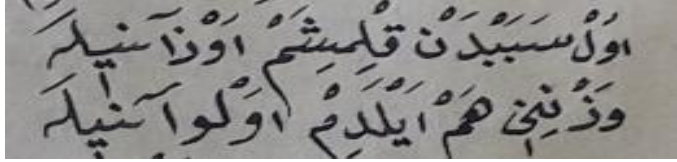 اوَلْ سَبَبْدَنْ قِلِمِشَمْ اَوْزَآنِيلَه
وَزْنِنِى هَمْ اَيْلَدِمْ اَوْلُوآنِيلَه